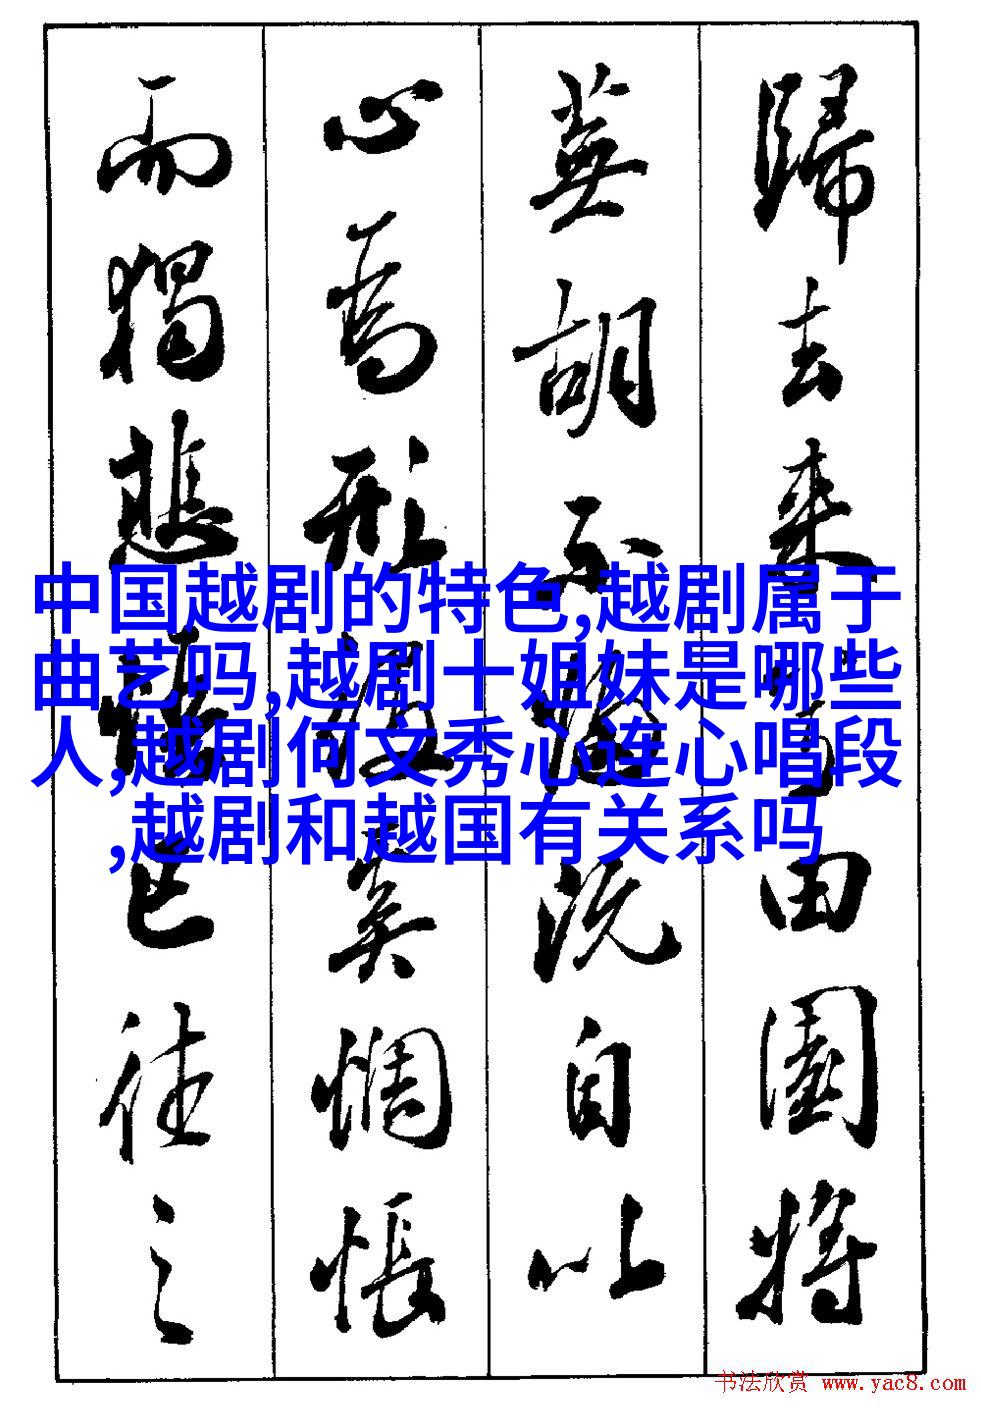 歸去来田園將
蕪胡不既自以
心為形役奚惆悵
而獨悲已往之
中国越剧的特色,越剧属于
曲艺吗,越剧十姐妹是哪些
人,越剧何文秀心连心唱段
,越剧和越国有关系吗
书法欣赏 www.yac8.com